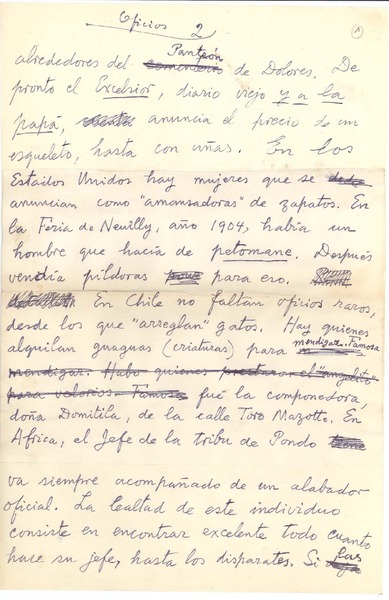 Oficios 2
1
alrededores del Panteón de Dolores. De
pronto el Excelsior, diario viejo y a la
papá, anuncia el precio de un
esqueleto, hasta con uñas. En los
Estados Unidos hay mujeres que se
anuncian como "amansadoras" de zapatos. En
la Feria de Neuilly, año 1904, había un
hombre que hacía de petomane. Después
vendía píldoras para eso.
En Chile no faltan oficios raros,
desde los que "arreglan" gatos. Hay quienes
alquilan guaguas (criaturas) para mendigar. Famosa
mendigar. Hubo quienes prestaran el "angelito"
para velorios. Famosa fué la componedora,
doña Domitila, de la calle Toro Mazotte. En
Africa, el Jefe de la tribu de Pondo
va siempre acompañado de un alabador
oficial. La lealtad de este individuo
consiste en encontrar excelente todo cuanto
hace su jefe, hasta los disparates. Si las